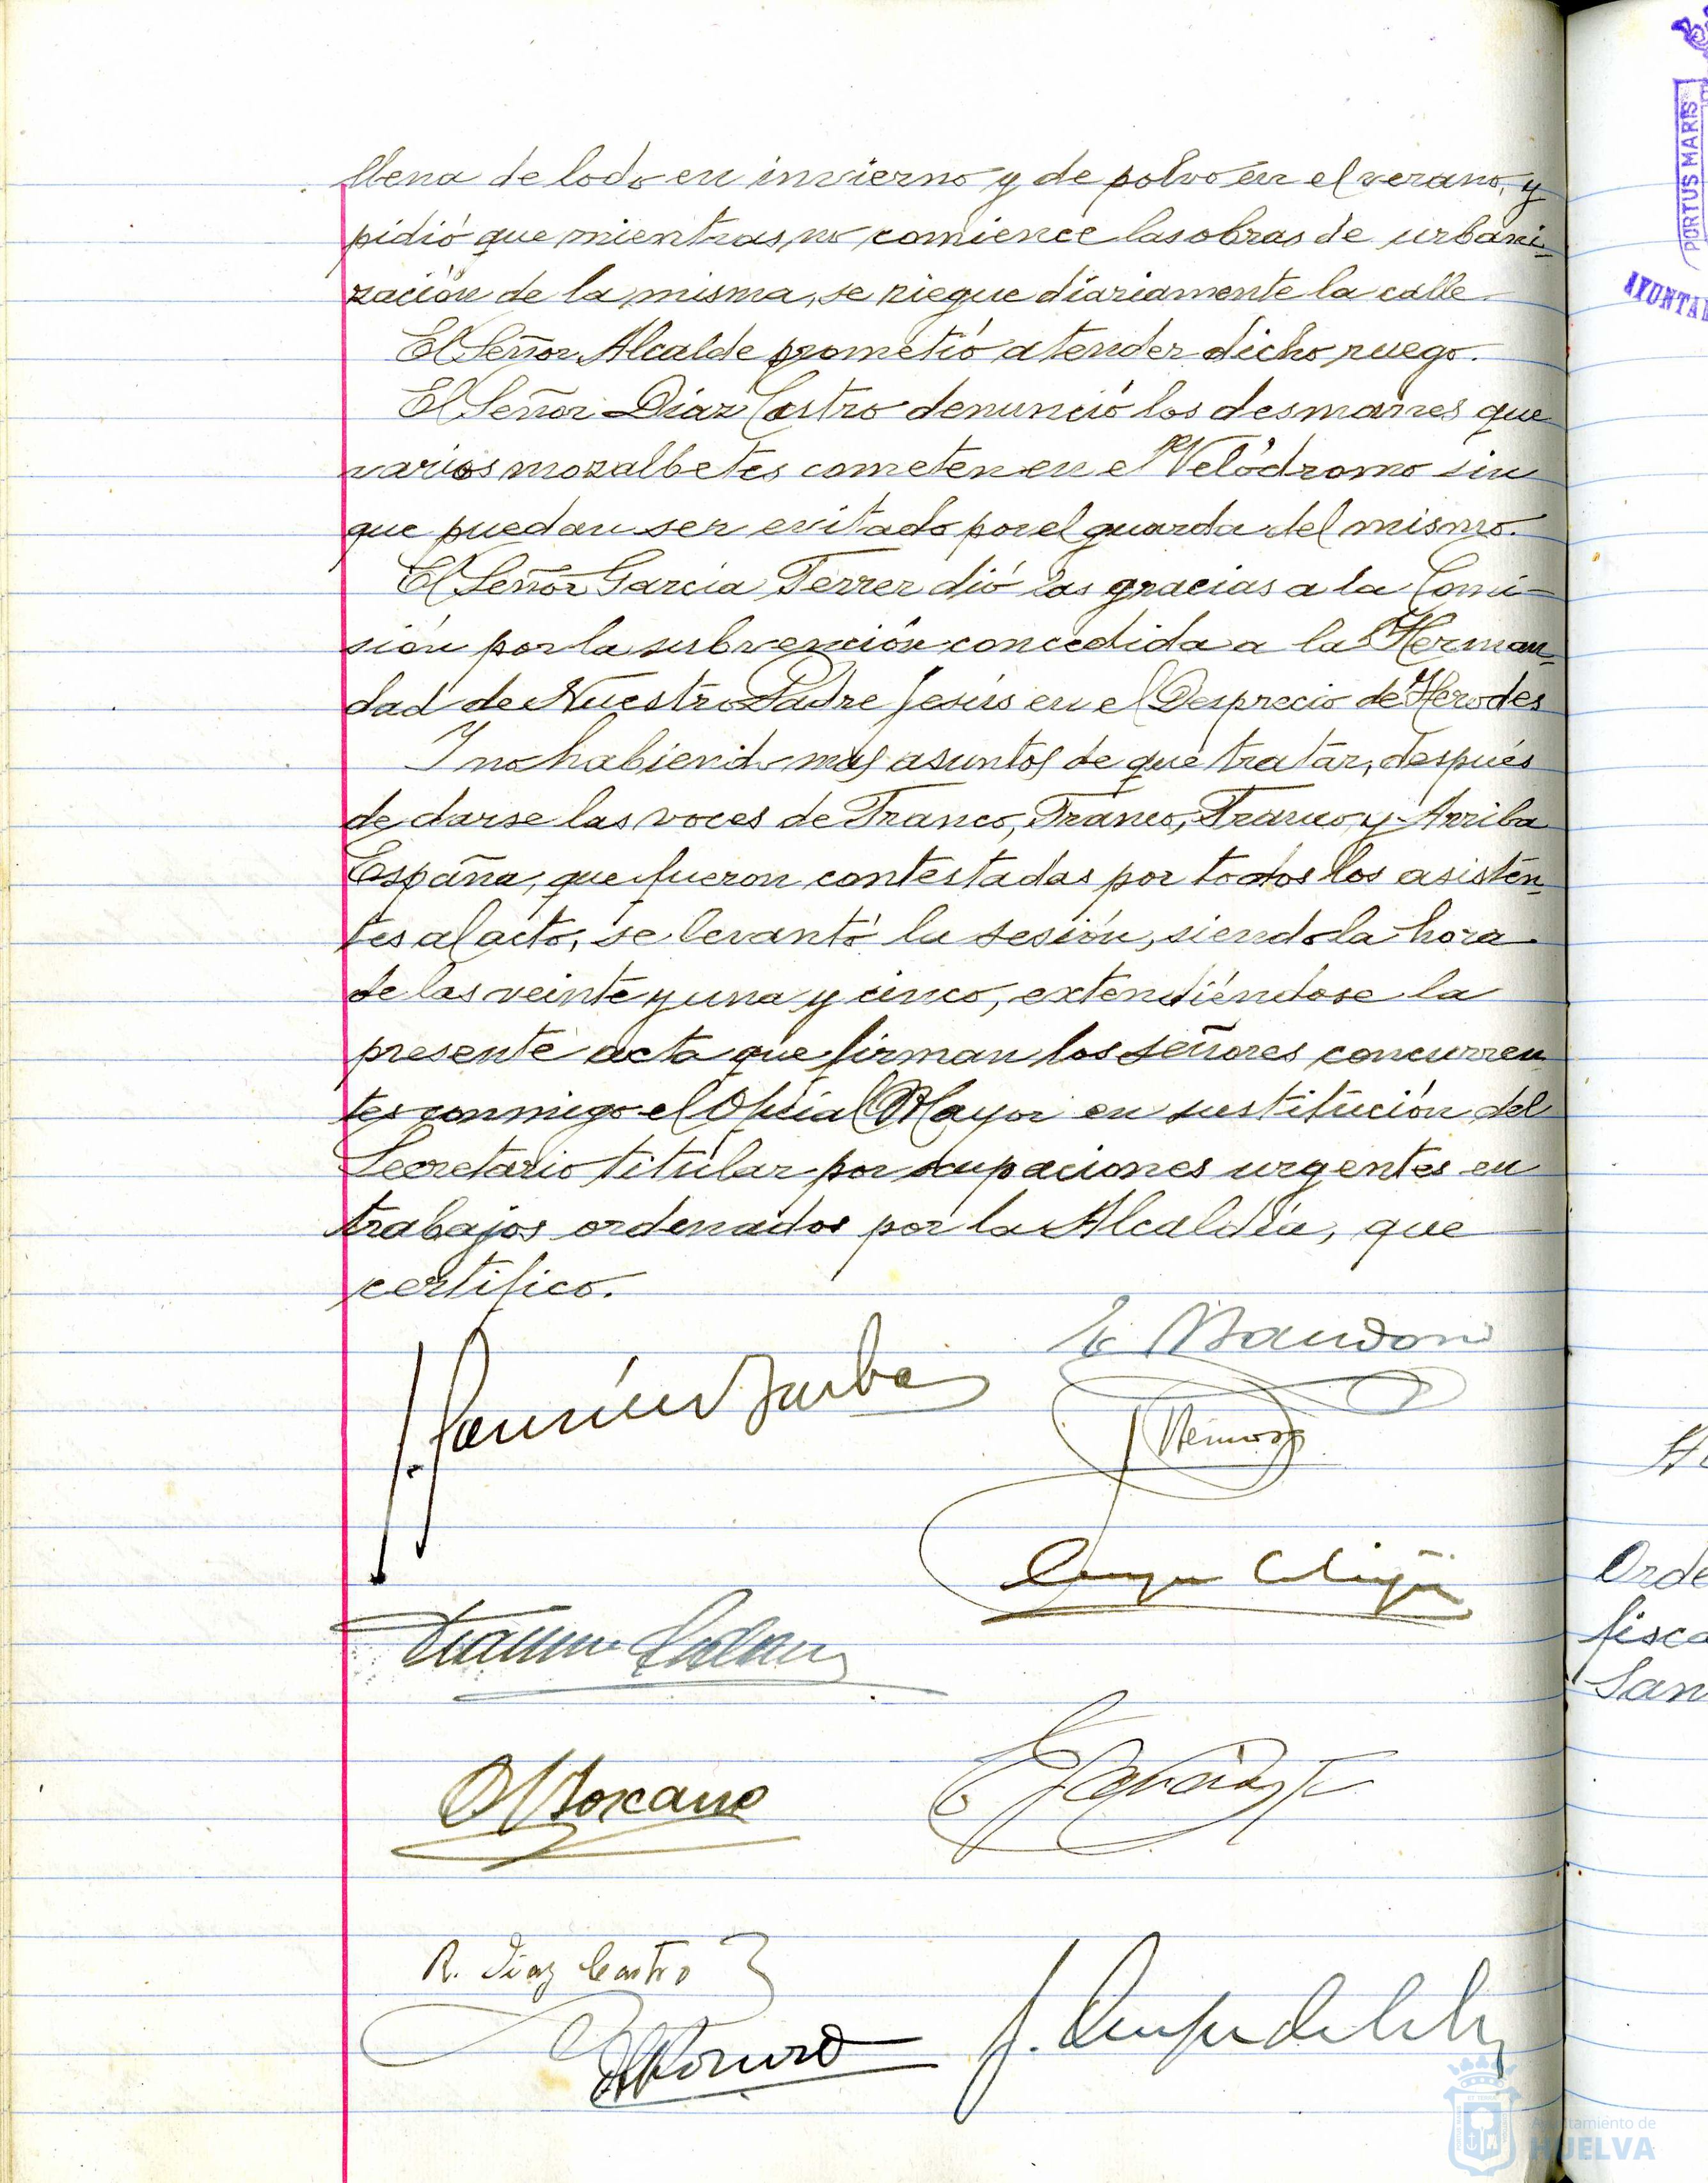 llena de lodo en invierno y de polvo en el verano, y
pidió que mientras no comience las obras de urbani-
zación de la misma, se riegue diariamente la calle.
El Señor Alcalde prometió atender dicho ruego.
El Señor Díaz Castro denunció los desmanes que
varios mozalbetes cometen en el Velódromo sin
que puedan ser evitado por el guarda del mismo.
El Señor García Ferrer dió las gracias a la Comi-
sión por la subvención concedida a la Herman-
dad de Nuestro Padre Jesús en el Desprecio de Herodes
Y no habiendo mas asuntos de que tratar, después
de darse las voces de Franco, Franco, Franco, y Arriba
España, que fueron contestadas por todos los asisten-
tes al acto, se levantó la sesión, siendo la hora
de las veinte y una y cinco, extendiéndose la
presente acta que firman los señores concurren-
tes conmigo el Oficial Mayor en sustitución del
Secretario titular por ocupaciones urgentes en
trabajos ordenados por la Alcaldía, que
certifico.
R. Díaz Castro
PORTUS MARIS
AYUNTA
Orde
fisca
San
Ayuntamiento de
HUELVA